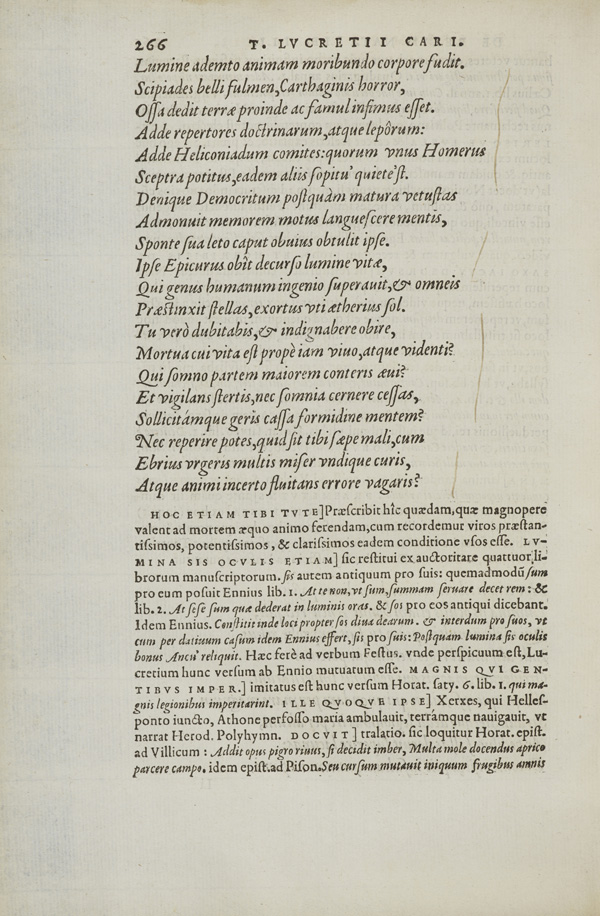 266 T. LVCRETII CARI.
Lumine ademto animam moribundo corpore fudit.
Scipiades belli fulmen, Carthaginis horror,
Oſſa dedit terræ proinde ac famul infimus eſſet.
Adde repertores doctrinarum, atque lepôrum:
Adde Heliconiadum comites: quorum vnus Homerus
Sceptra potitus, eadem aliis ſopitu' quiete'ſt.
Denique Democritum poſtquàm matura vetuſtas
Admonuit memorem motus langueſcere mentis,
Sponte ſua leto caput obuius obtulit ipſe.
Ipſe Epicurus obît decurſo lumine vitæ,
Qui genus humanum ingenio ſuperauit, & omneis
Præſtinxit ſtellas, exortus vti ætherius ſol.
Tu verò dubitabis, & indignabere obire,
Mortua cui vita eſt propè iam viuo, atque videnti?
Qui ſomno partem maiorem conteris æui?
Et vigilans ſtertis, nec ſomnia cernere ceſſas,
Sollicitámque geris caſſa formidine mentem?
Nec reperire potes, quid ſit tibi ſæpe mali, cum
Ebrius vrgeris multis miſer vndique curis,
Atque animi incerto fluitans errore vagaris?
HOC ETIAM TIBI TVTE] Præſcribit hîc quædam, quæ magnopere
valent ad mortem æquo animo ferendam, cum recordemur viros præſtan-
tiſsimos, potentiſsimos, & clariſsimos eadem conditione vſos eſſe. LV-
MINA SIS OCVLIS ETIAM] ſic reſtitui ex auctoritate quattuor li-
brorum manuſcriptorum. ſis autem antiquum pro ſuis: quemadmodũ ſum
pro eum poſuit Ennius lib. 1. At te non, vt ſum, ſummam ſeruare decet rem: &
lib. 2. At ſeſe ſum quæ dederat in luminis oras. & ſos pro eos antiqui dicebant.
Idem Ennius. Conſtitit inde loci propter ſos diua dearum. & interdum pro ſuos, vt
cum per datiuum caſum idem Ennius effert, ſis pro ſuis: Poſtquam lumina ſis oculis
bonus Ancu' reliquit. Hæc ferè ad verbum Feſtus. vnde perſpicuum eſt, Lu-
cretium hunc verſum ab Ennio mutuatum eſſe. MAGNIS QVI GEN-
TIBVS IMPER.] imitatus eſt hunc verſum Horat. ſaty. 6. lib. 1. qui ma-
gnis legionibus imperitarint. ILLE QVOQVE IPSE] Xerxes, qui Helleſ-
ponto iuncto, Athone perfoſſo maria ambulauit, terrámque nauigauit, vt
narrat Herod. Polyhymn. DOCVIT] tralatio. ſic loquitur Horat. epiſt.
ad Villicum: Addit opus pigro riuus, ſi decidit imber, Multa mole docendus aprico
parcere campo. idem epiſt. ad Piſon. Seu curſum mutauit iniquum frugibus amnis